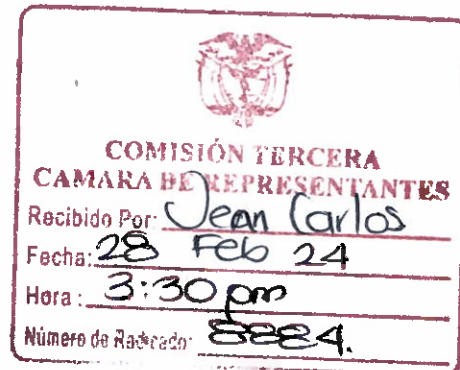 COMISIÓN TERCERA
CAMARA DE REPRESENTANTES
Recibido Por: Jean Carlos
Fecha: 28 Feb 24
Hora: 3:30 pm
Número de Radicado: 8884.